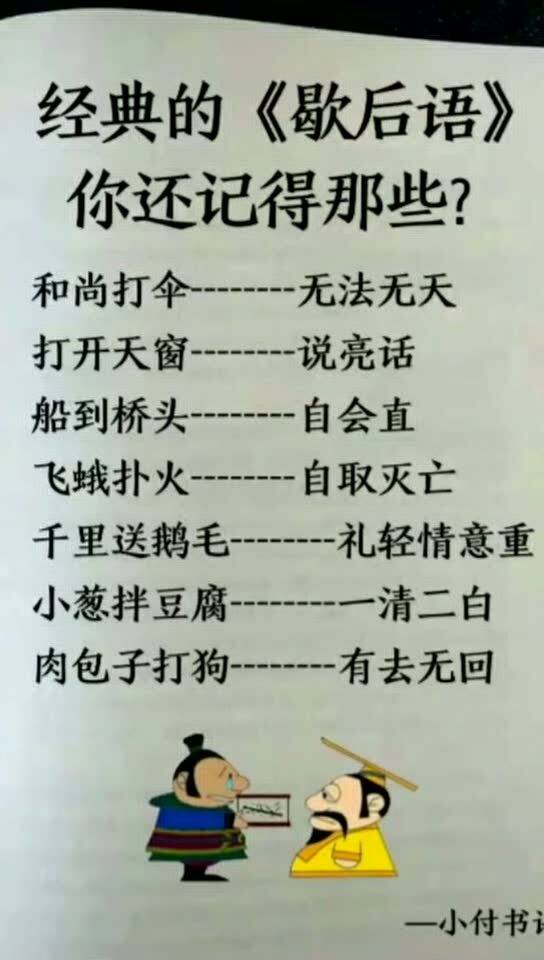 经典的《歇后语》
你还记得那些?
和尚打伞--------无法无天
打开天窗--------说亮话
船到桥头--------自会直
飞蛾扑火--------自取灭亡
千里送鹅毛--------礼轻情意重
小葱拌豆腐--------一清二白
肉包子打狗--------有去无回
—小付书